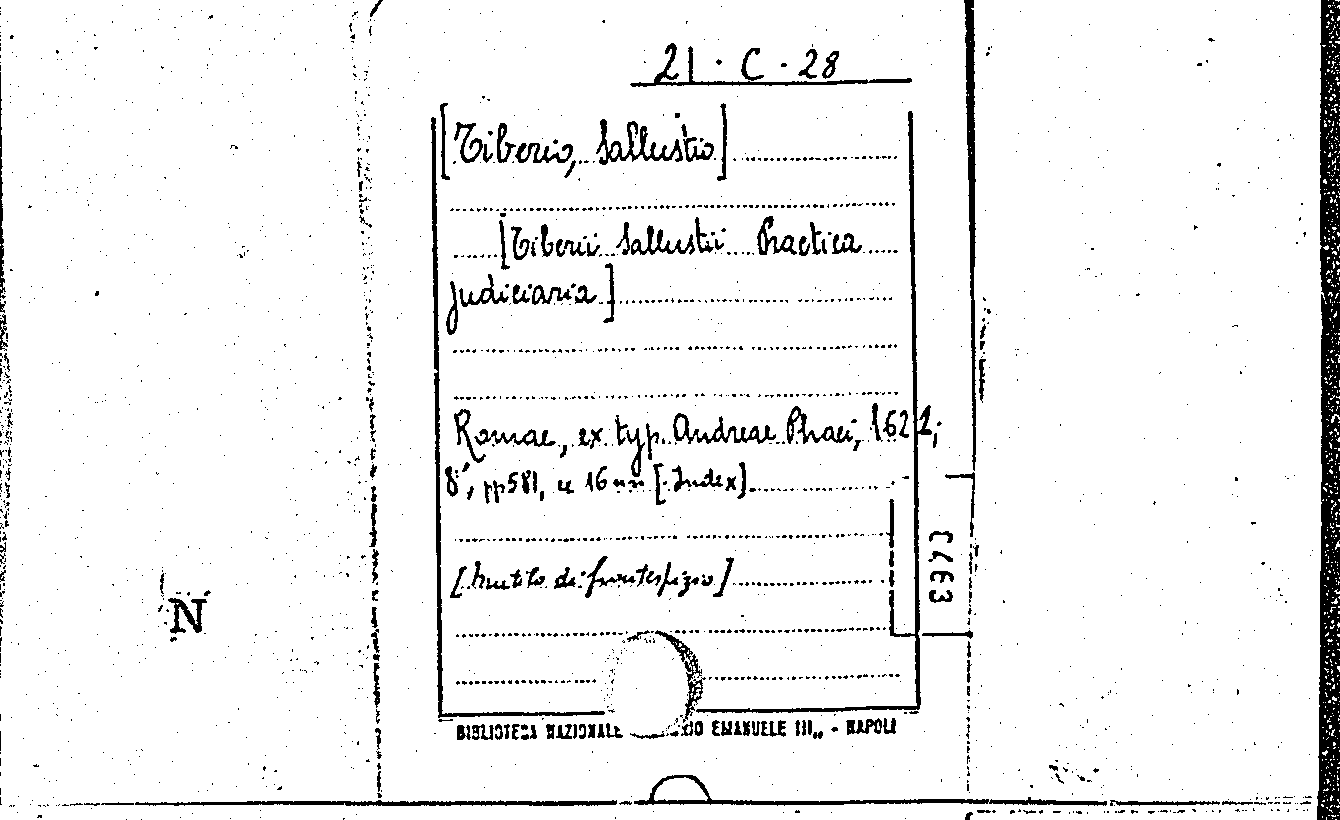 21 · C · 28
[Tiberio, Sallustio]
[Tiberii Sallustii Practica
Judiciaria]
Romae, ex typ. Andreae Phaei, 1621;
8°, pp 581, 16 nn [Index].
[Mutilo di frontespizio]
N
BIBLIOTECA NAZIONALE EMANUELE III„ - NAPOLI